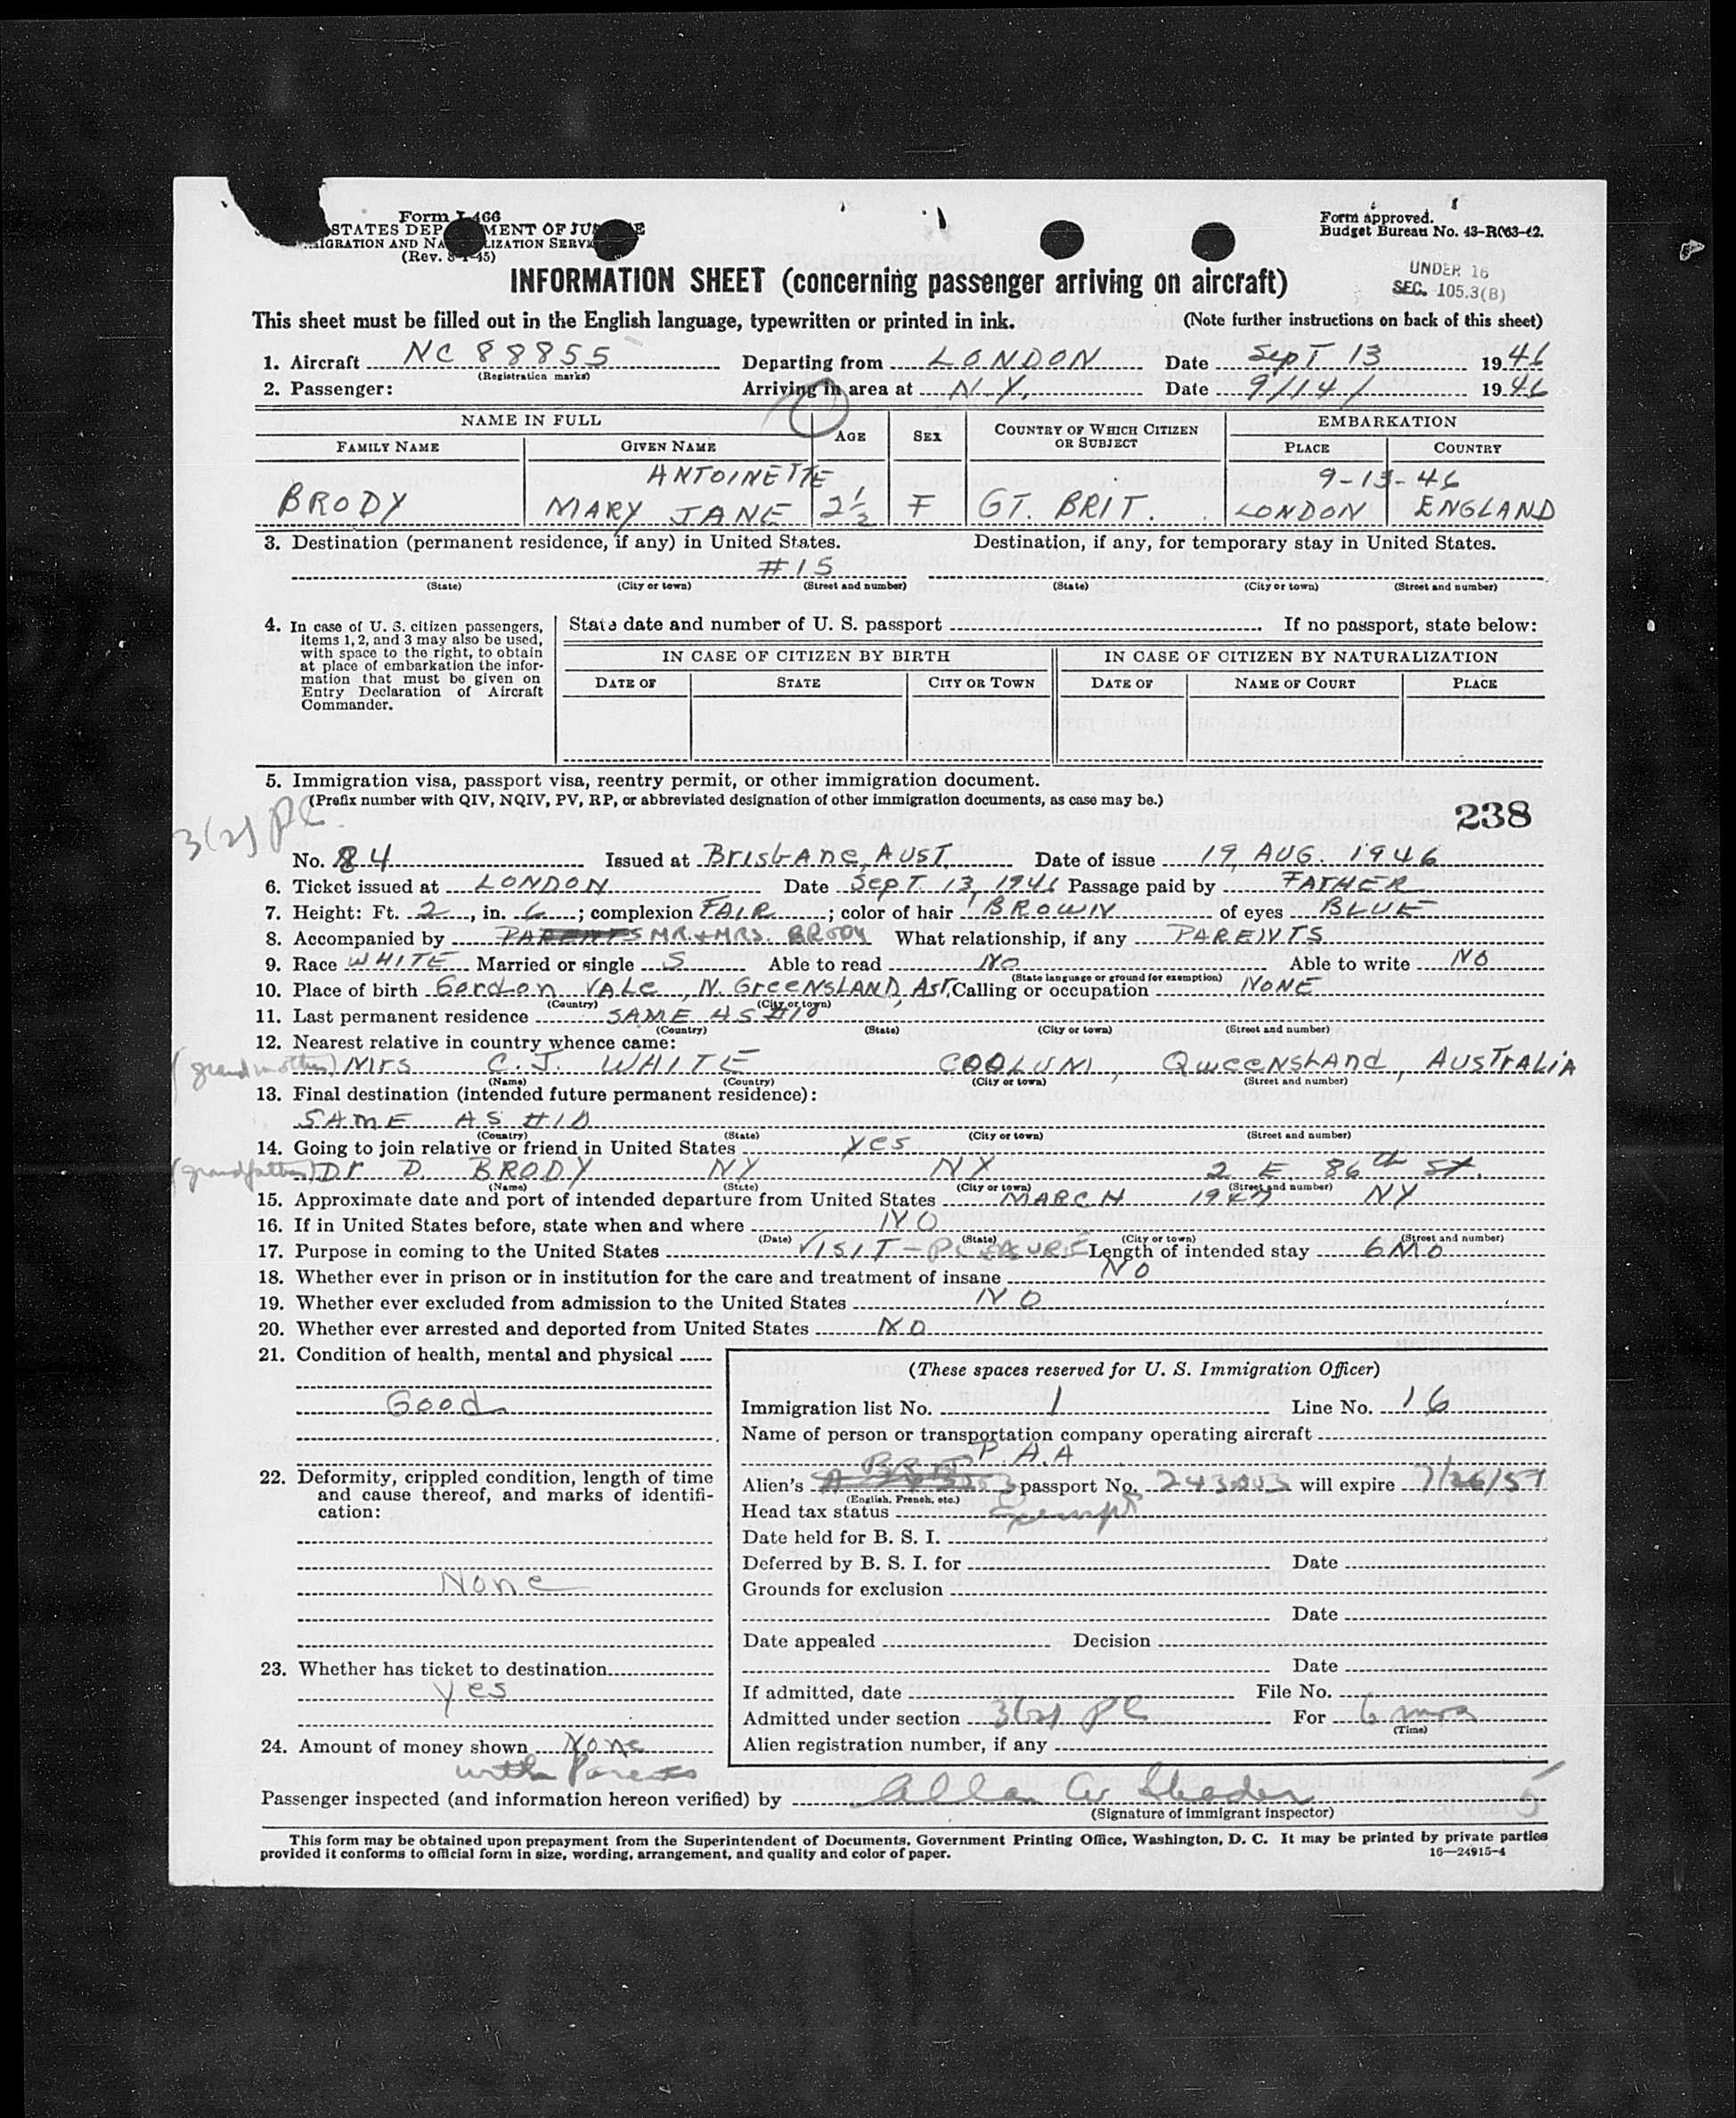 Form I-466
STATES DEP MENT OF JU E
IGRATION AND NA LIZATION SERVI
(Rev. 8-1-45)
Form approved.
Budget Bureau No. 43-R063-42.
UNDER 16
SEC. 105.3(B)
INFORMATION SHEET (concerning passenger arriving on aircraft)
This sheet must be filled out in the English language, typewritten or printed in ink. (Note further instructions on back of this sheet)
1. Aircraft NC 88855 Departing from LONDON Date SepT 13 1946
(Registration marks)
2. Passenger: Arriving in area at N.Y. Date 9/14/ 1946
NAME IN FULL AGE SEX COUNTRY OF WHICH CITIZEN OR SUBJECT EMBARKATION
FAMILY NAME GIVEN NAME PLACE COUNTRY
ANTOINETTE 9-13-46
BRODY MARY JANE 2½ F GT. BRIT. LONDON ENGLAND
3. Destination (permanent residence, if any) in United States. Destination, if any, for temporary stay in United States.
#15
(State) (City or town) (Street and number) (State) (City or town) (Street and number)
4. In case of U. S. citizen passengers, items 1, 2, and 3 may also be used, with space to the right, to obtain at place of embarkation the information that must be given on Entry Declaration of Aircraft Commander.
State date and number of U. S. passport If no passport, state below:
IN CASE OF CITIZEN BY BIRTH IN CASE OF CITIZEN BY NATURALIZATION
DATE OF STATE CITY OR TOWN DATE OF NAME OF COURT PLACE
5. Immigration visa, passport visa, reentry permit, or other immigration document.
(Prefix number with QIV, NQIV, PV, RP, or abbreviated designation of other immigration documents, as case may be.)
238
3(2) PL
No. 84 Issued at Brisbane, AUST. Date of issue 19 AUG. 1946
6. Ticket issued at LONDON Date SepT 13, 1946 Passage paid by FATHER
7. Height: Ft. 2, in. 6; complexion FAIR; color of hair BROWN of eyes BLUE
8. Accompanied by PARENTS MR. + MRS. BRODY What relationship, if any PARENTS
9. Race WHITE Married or single S Able to read NO Able to write NO
(State language or ground for exemption)
10. Place of birth Gordon VALe, N. GreeNSLAND, AsT. Calling or occupation NONE
(Country) (City or town)
11. Last permanent residence SAME AS #10
(Country) (State) (City or town) (Street and number)
12. Nearest relative in country whence came:
(grandmother) Mrs C. J. WHITE COOLUM, QueeNSLand, AUSTRALIA
(Name) (Country) (City or town) (Street and number)
13. Final destination (intended future permanent residence):
SAME AS #10
(Country) (State) (City or town) (Street and number)
14. Going to join relative or friend in United States yes
(grandfather) Dr D. BRODY NY NY 2 E. 86th St.
(Name) (State) (City or town) (Street and number)
15. Approximate date and port of intended departure from United States MARCH 1947 NY
16. If in United States before, state when and where NO
(Date) (State) (City or town) (Street and number)
17. Purpose in coming to the United States VISIT - PLEASURE Length of intended stay 6 Mo
18. Whether ever in prison or in institution for the care and treatment of insane NO
19. Whether ever excluded from admission to the United States NO
20. Whether ever arrested and deported from United States NO
21. Condition of health, mental and physical
Good
22. Deformity, crippled condition, length of time and cause thereof, and marks of identification:
None
23. Whether has ticket to destination
yes
24. Amount of money shown None
with Parents
(These spaces reserved for U. S. Immigration Officer)
Immigration list No. 1 Line No. 16
Name of person or transportation company operating aircraft
P.A.A
Alien's BRIT passport No. 243003 will expire 7/26/51
(English, French, etc.)
Head tax status Exempt
Date held for B. S. I.
Deferred by B. S. I. for Date
Grounds for exclusion
Date
Date appealed Decision
Date
If admitted, date File No.
Admitted under section 3(2) PL For 6 mos
(Time)
Alien registration number, if any
Passenger inspected (and information hereon verified) by Allan W
(Signature of immigrant inspector)
This form may be obtained upon prepayment from the Superintendent of Documents, Government Printing Office, Washington, D. C. It may be printed by private parties
provided it conforms to official form in size, wording, arrangement, and quality and color of paper. 16—24915-4